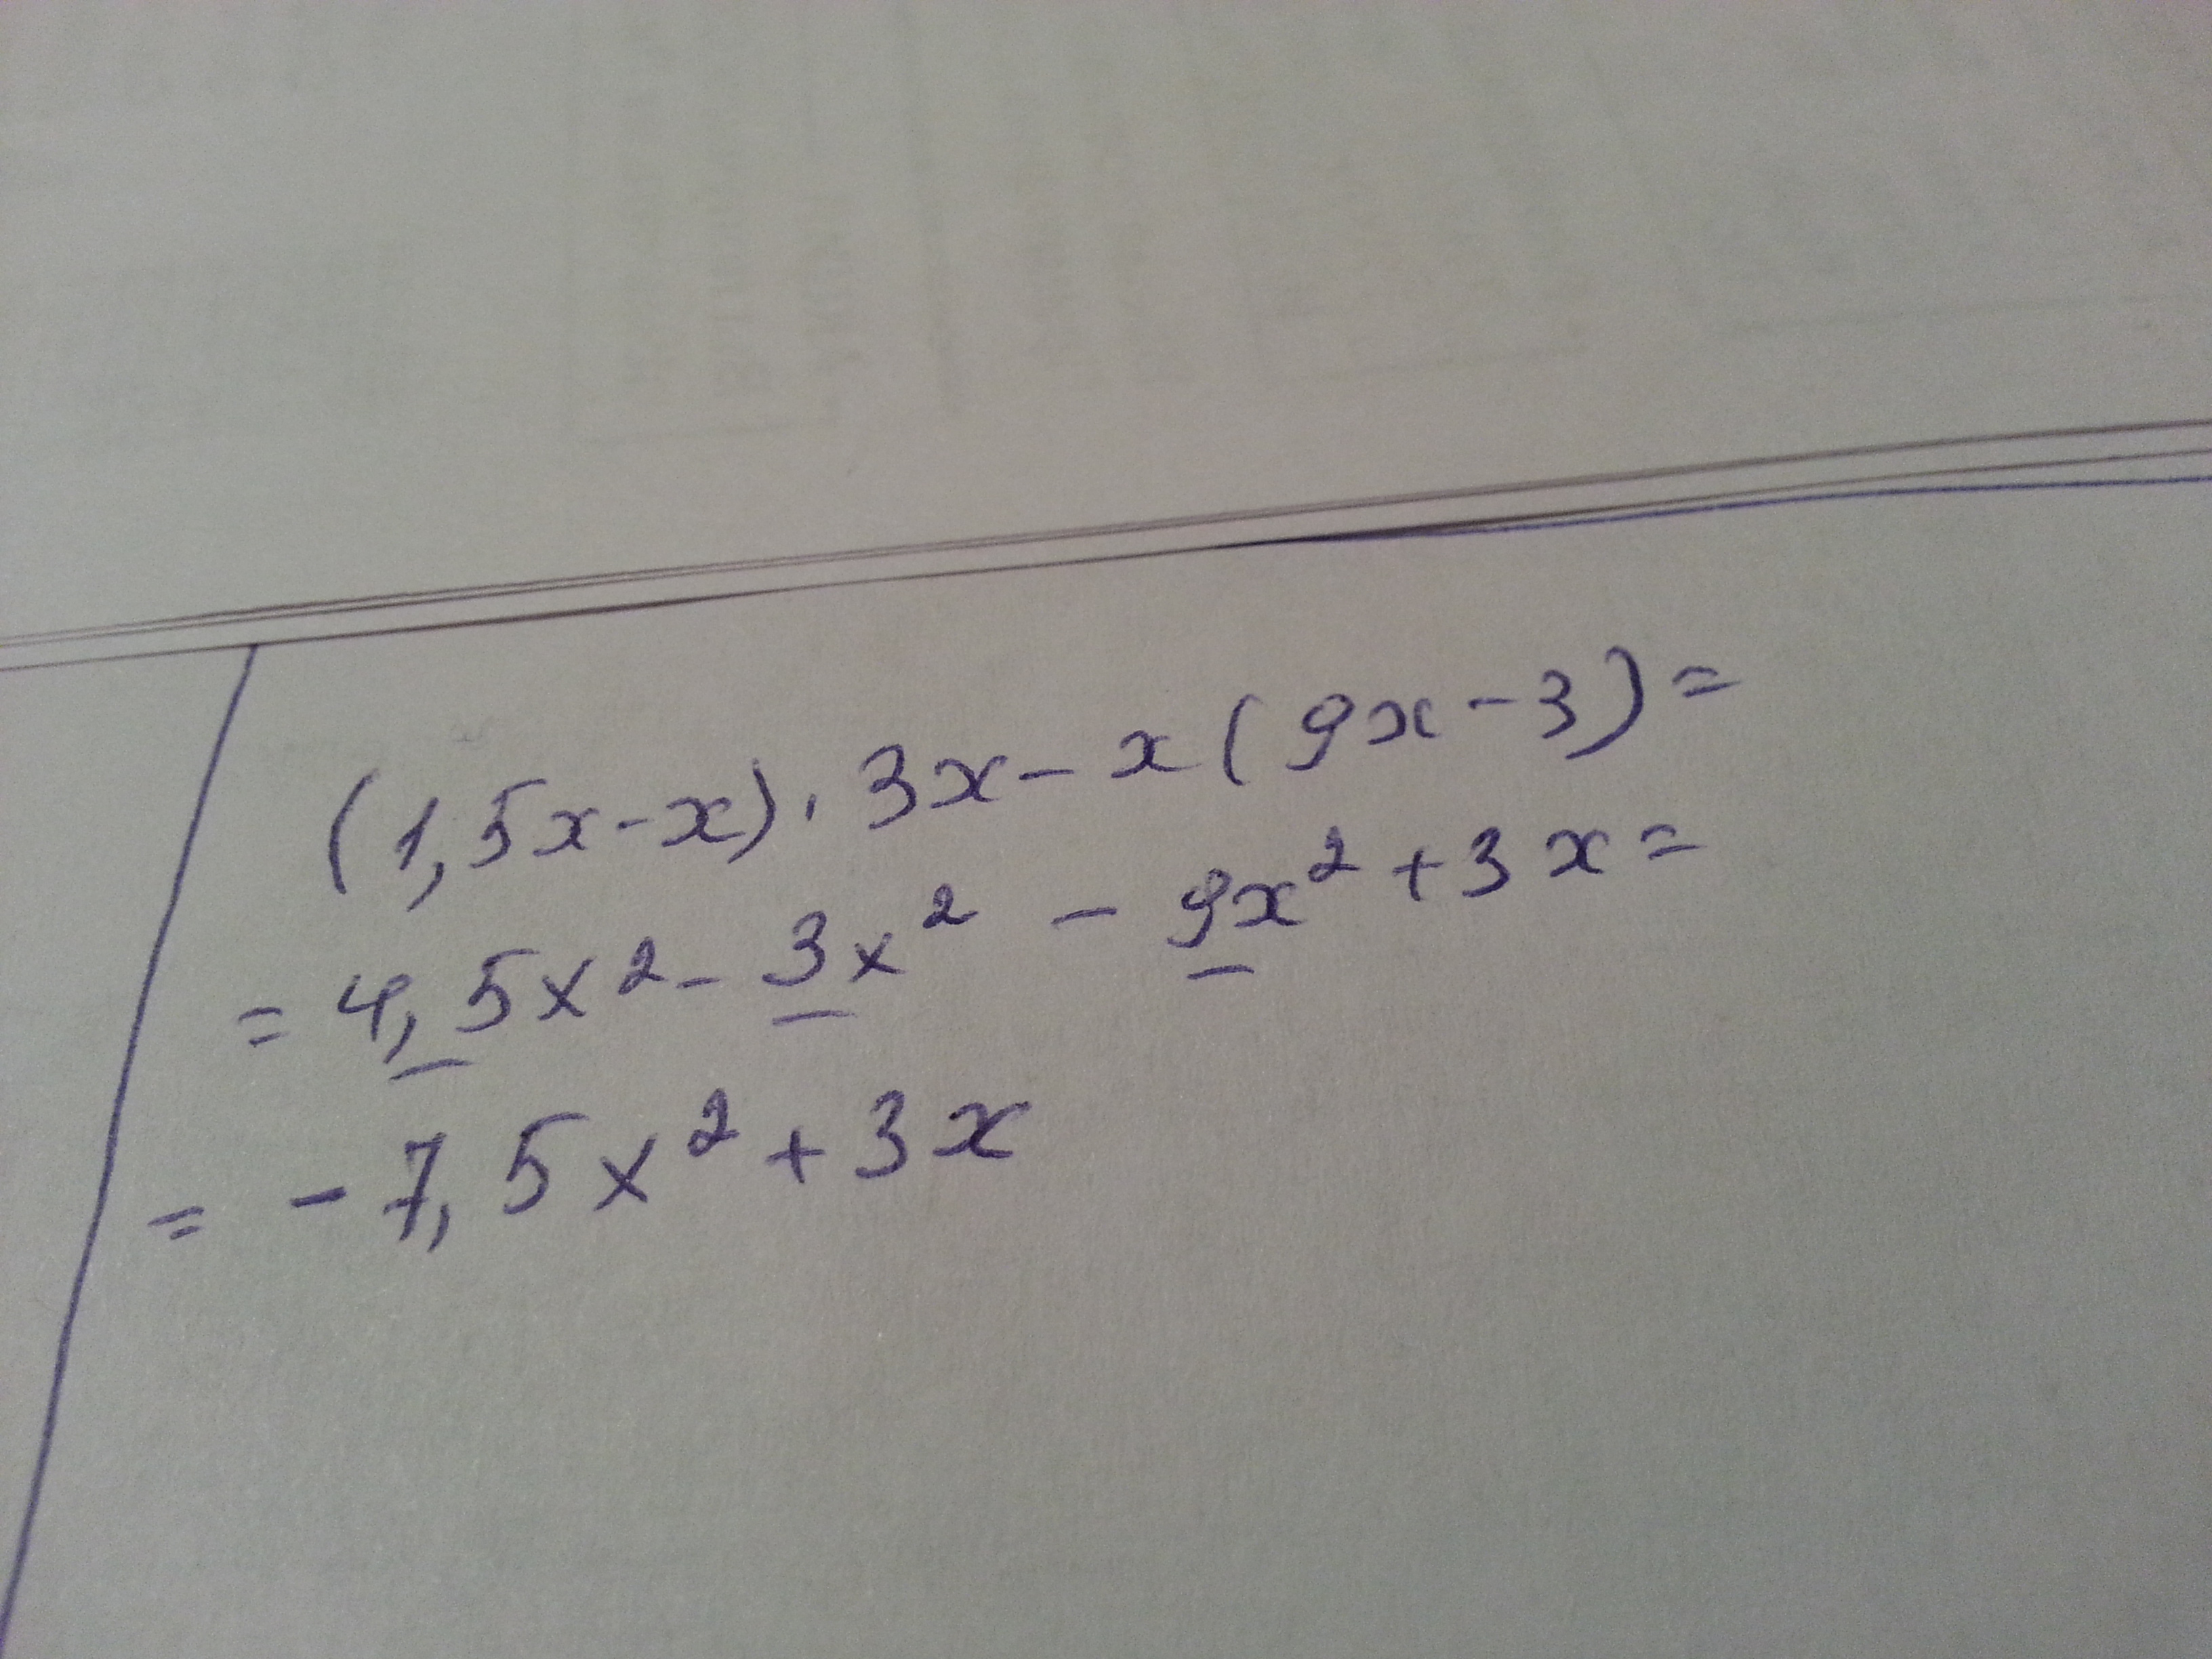 (1,5x-x). 3x-x(9x-3)=
= 4,5x² - 3x² - 9x² + 3x =
= -7,5x² + 3x